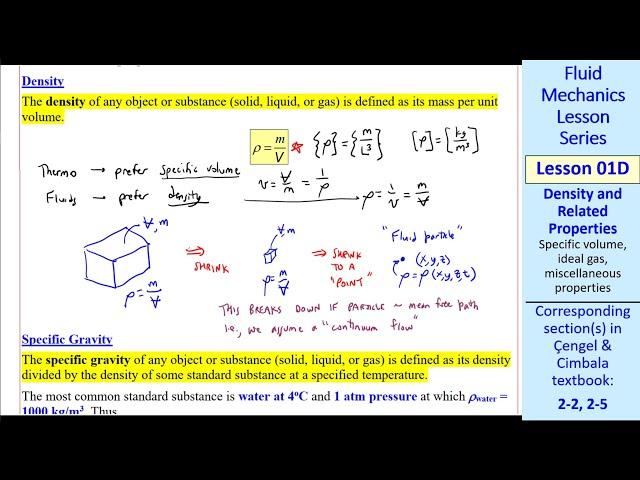 Density
The density of any object or substance (solid, liquid, or gas) is defined as its mass per unit
volume.
ρ = m/V * {ρ} = {m/L³} [ρ] = [kg/m³]
Thermo → prefer specific volume v = V/m = 1/ρ
Fluids → prefer density → ρ = 1/v = m/V
V, m
ρ = m/V
⇒ SHRINK
V, m
ρ = m/V
⇒ SHRINK
TO A
"POINT"
"Fluid particle"
ρ (x,y,z)
ρ = ρ(x,y,z,t)
THIS BREAKS DOWN IF PARTICLE ~ mean free path
i.e., we assume a "continuum flow"
Specific Gravity
The specific gravity of any object or substance (solid, liquid, or gas) is defined as its density
divided by the density of some standard substance at a specified temperature.
The most common standard substance is water at 4°C and 1 atm pressure at which ρwater =
1000 kg/m³. Thus
Fluid
Mechanics
Lesson
Series
Lesson 01D
Density and
Related
Properties
Specific volume,
ideal gas,
miscellaneous
properties
Corresponding
section(s) in
Çengel &
Cimbala
textbook:
2-2, 2-5